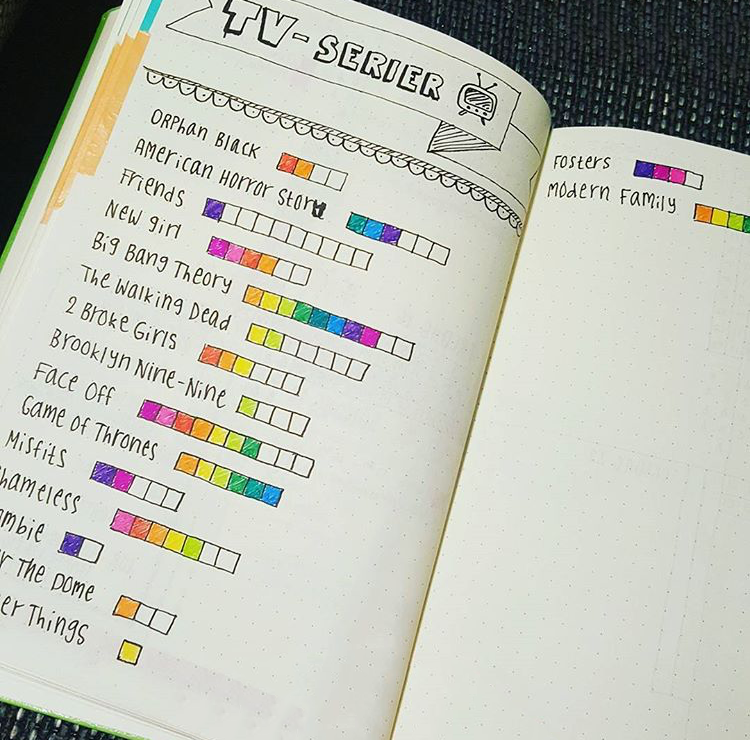 TV-SERIER
Orphan Black
American Horror Story
Friends
New girl
Big Bang Theory
The Walking Dead
2 Broke Girls
Brooklyn Nine-Nine
Face Off
Game of Thrones
Misfits
hameless
mbie
r The Dome
er Things
Fosters
Modern Family